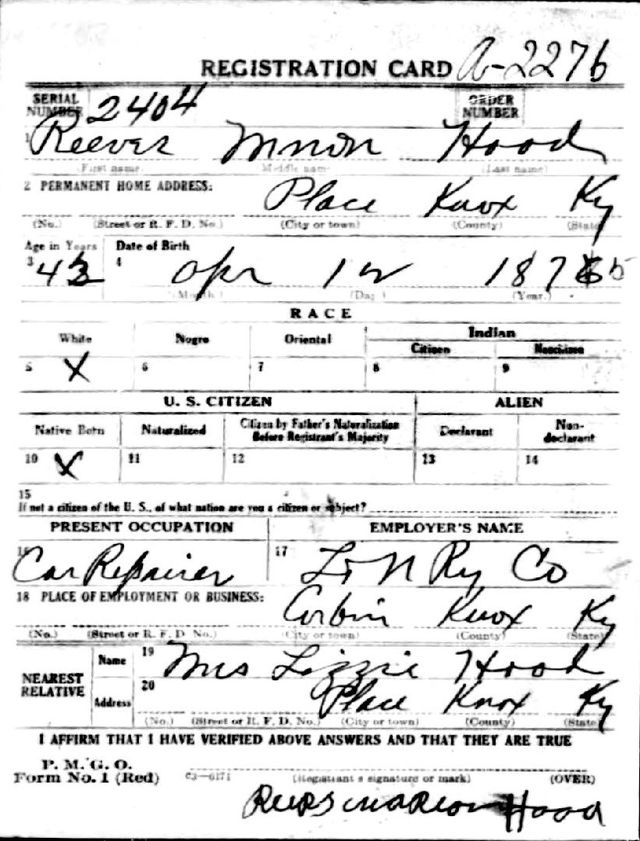 REGISTRATION CARD A-2276
SERIAL NUMBER 2404 ORDER NUMBER
1 Reeves Hood
(First name) (Middle name) (Last name)
2 PERMANENT HOME ADDRESS:
Place Knox Ky
(No.) (Street or R. F. D. No.) (City or town) (County) (State)
Age in Years Date of Birth
3 43 4 Apr 12 1875
(Month) (Day) (Year.)
RACE
White Negro Oriental Indian
Citizen Noncitizen
5 X 6 7 8 9
U. S. CITIZEN ALIEN
Native Born Naturalized Citizen by Father's Naturalization Before Registrant's Majority Declarant Non-declarant
10 X 11 12 13 14
15
If not a citizen of the U. S., of what nation are you a citizen or subject?
PRESENT OCCUPATION EMPLOYER'S NAME
16 Car Repairer 17 L & N Ry Co
18 PLACE OF EMPLOYMENT OR BUSINESS:
Corbin Knox Ky
(No.) (Street or R. F. D. No.) (City or town) (County) (State)
NEAREST RELATIVE
Name 19 Mrs Lizzie Hood
Address 20 Place Knox Ky
(No.) (Street or R. F. D. No.) (City or town) (County) (State)
I AFFIRM THAT I HAVE VERIFIED ABOVE ANSWERS AND THAT THEY ARE TRUE
P. M. G. O.
Form No. 1 (Red) C3-6171 (Registrant's signature or mark) (OVER)
Hood